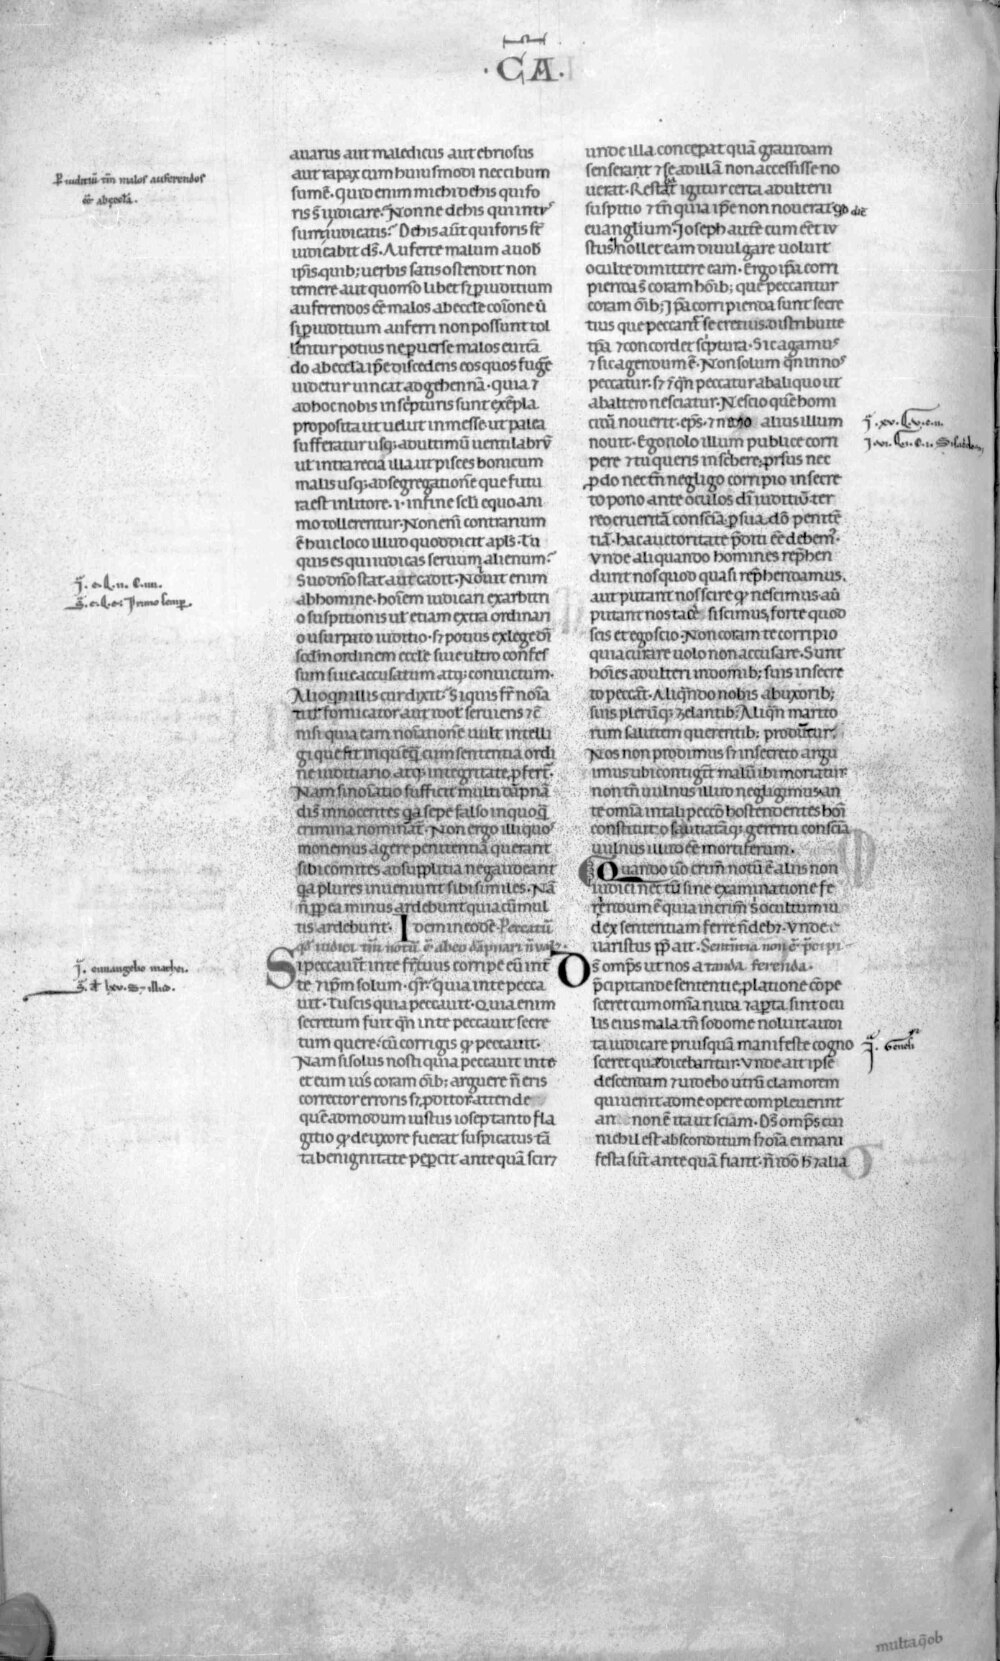 ·CA·
auarus aut maledicus aut ebriosus
aut rapax cum huiusmodi nec cibum
sumẽ. quid enim michi debis qui fo
ris s̃ iudicare. Nonne debis qui intꝰ
sunt iudicatis. Debis aũt qui foris st̃
iudicabit ds̃. Auferte malum a uob̃
ip̃is quib; uerbis satis ostendit non
temere aut quomodo libet s; ꝑ iuditium
auferendos eẽ malos ab eccłe cõione ũ
si ꝑ iuditium auferri non possunt tol
lentur potius ne ꝑuerse malos euitã
do ab eccła ip̃e discedens eos quos fugẽ
uidetur uincat ad gehennã. quia ⁊
ad hoc nobis in sc̃pturis sunt exẽpla
proposita ut uelut in messe ut palea
sufferatur usq; ad ultimũ uentilabrũ
ut intra recia illa ut pisces boni cum
malis usq; ad segregationẽ que futu
ra est in litore .i. in fine scłi equo ani
mo tollerentur. Non enĩ contrarium
ẽ huic loco illud quod dicit apłs. Tu
quis es qui iudicas seruum alienum.
Suo dño stat aut cadit. Noluit enim
ab homine hoĩem iudicari ex arbitri
o suspitionis uł etiam extra ordinari
o usurpato iuditio. s; potius ex lege dĩ
scdm̃ ordinem eccłe siue ultro confes
sum siue accusatum atq; conuictum.
Alioqñ illis cur dixit. Siquis fr̃ noĩa
tur fornicator aut idoł seruiens ⁊c̃
nisi quia eam noĩationẽ uult intelli
gi que fit in quẽq; cum sententia ordi
ne iuditiario atq; integritate ꝑfert̃.
Nam si noĩatio sufficit multi dãpnã
di s̃ innocentes q̃a sepe falso in quoq̃
crimina nominãt̃. Non ergo illi quoˢ
monemus agere penitentiã querant
sibi comites ad supplitia ne gaudeant
q̃a plures inueniunt sibi similes. Nã
ñ ꝓpt̃ea minus ardebunt quia cũ mul
tis ardebunt. Idem in eodẽ. Peccatũ
qđ iudici tm̃ notũ ẽ ab eo dãpnari ñ ualꝫ.
Si peccauĩt in te fr̃ tuus corripe eũ int̃
te ⁊ ip̃m solum. q̃r. quia in te pecca
uit. Tu scis quia peccauit. Quia enim
secretum fuit qñ in te peccauit secre
tum quere: cũ corrigis ꝙ peccauit.
Nam si solus nosti quia peccauit in te
et eum uis coram oĩb; arguere ñ eris
corrector erroris s; ꝓditor. attende
quẽadmodum iustus ioseph tanto fla
gitio ꝙ de uxore fuerat suspicatus tã
ta benignitate peꝑcit ante quã sciret
unde illa concepat quã grauidam
senserant ⁊ se ad illã non accessisse no
uerat. Restat igitur certa adulterii
suspitio ⁊ tñ quia ip̃e non nouerat
euanglium. Joseph autẽ cum eẽt iu
stus ⁊ nollet eam diuulgare uoluit
occulte dimittere eam. Ergo ip̃a corri
pienda s̃ coram hoĩb; que peccantur
coram oĩb; Ip̃a corripienda sunt secre
tius que peccant̃ secretius. distribuite
tp̃a ⁊ concordet sc̃ptura. Sic agamus
⁊ sic agendum ẽ. Non solum qñ in nos
peccatur. s; ⁊ qñ peccatur ab aliquo ut
ab altero nesciatur. Nescio quẽ homi
cidã nouerit ep̃s. ⁊ nemo alius illum
nouit. Ego nolo illum publice corri
pere ⁊ tu queris inscribere. prsus nec
ꝓdo nec tñ negligo corripio in secre
to pono ante oculos dĩ iuditiũ ter
reo cruentã consciã ꝑsuadeo peniten
tiã. hac auctoritate p̃diti eẽ debemꝰ.
Vnde aliquando homines rep̃hen
dunt nos quod quasi rep̃hendamus,
aut putant nos scire ꝙ nescimus aũ
putant nos tacẽ si scimus, forte quod
scis et ego scio. Non coram te corripio
quia curare uolo non accusare. Sunt
hoĩes adulteri in domib; suis in secre
to peccãt. Aliqñdo nobis ab uxorib;
suis plerũq; zelantib; Aliqñ marito
rum salutem querentib; produntur.
Nos non prodimus s; in secreto argu
imus ubi contigĩt malũ ibi moriatur
non tñ uulnus illud negligimus an
te omĩa in tali peccõ hostendentes hoĩ
constituto sautiatãq; gerenti consciã
uulnus illud eẽ mortiferum.
Quando uõ crim̃ notũ ẽ aliis non
iudici nec tũ sine examinatione fe
rendum ẽ quia in crim̃ s̃ occultum iu
dex sententiam ferre ñ deb;. Vnde e
uaristus pp̃ ait. Sententia non ẽ p̃cipi
tanda ferenda.
Ds̃ omp̃s ut nos a
p̃cipitande sententie ꝓlatione cõpe
sceret cum omĩa nuda ⁊ apta sint ocu
lis eius mala tñ sodome noluit audi
ta iudicare priusquã manifeste cogno
sceret qua dicebantur. Vnde ait ipse
descendam ⁊ uidebo utrũ clamorem
qui uenit ad me opere compleuerint
an non ẽ ita ut sciam. Ds̃ omp̃s cui
nichil est absconditum s; oĩa ei mani
festa sunt ante quã fiant. ñ ideo h̃ ⁊ alia
ꝑ iuditiũ tm̃ malos auferendos
eẽ ab eccła.
J. euuangelio mathei.
J. Geneſi
multaq̃ob